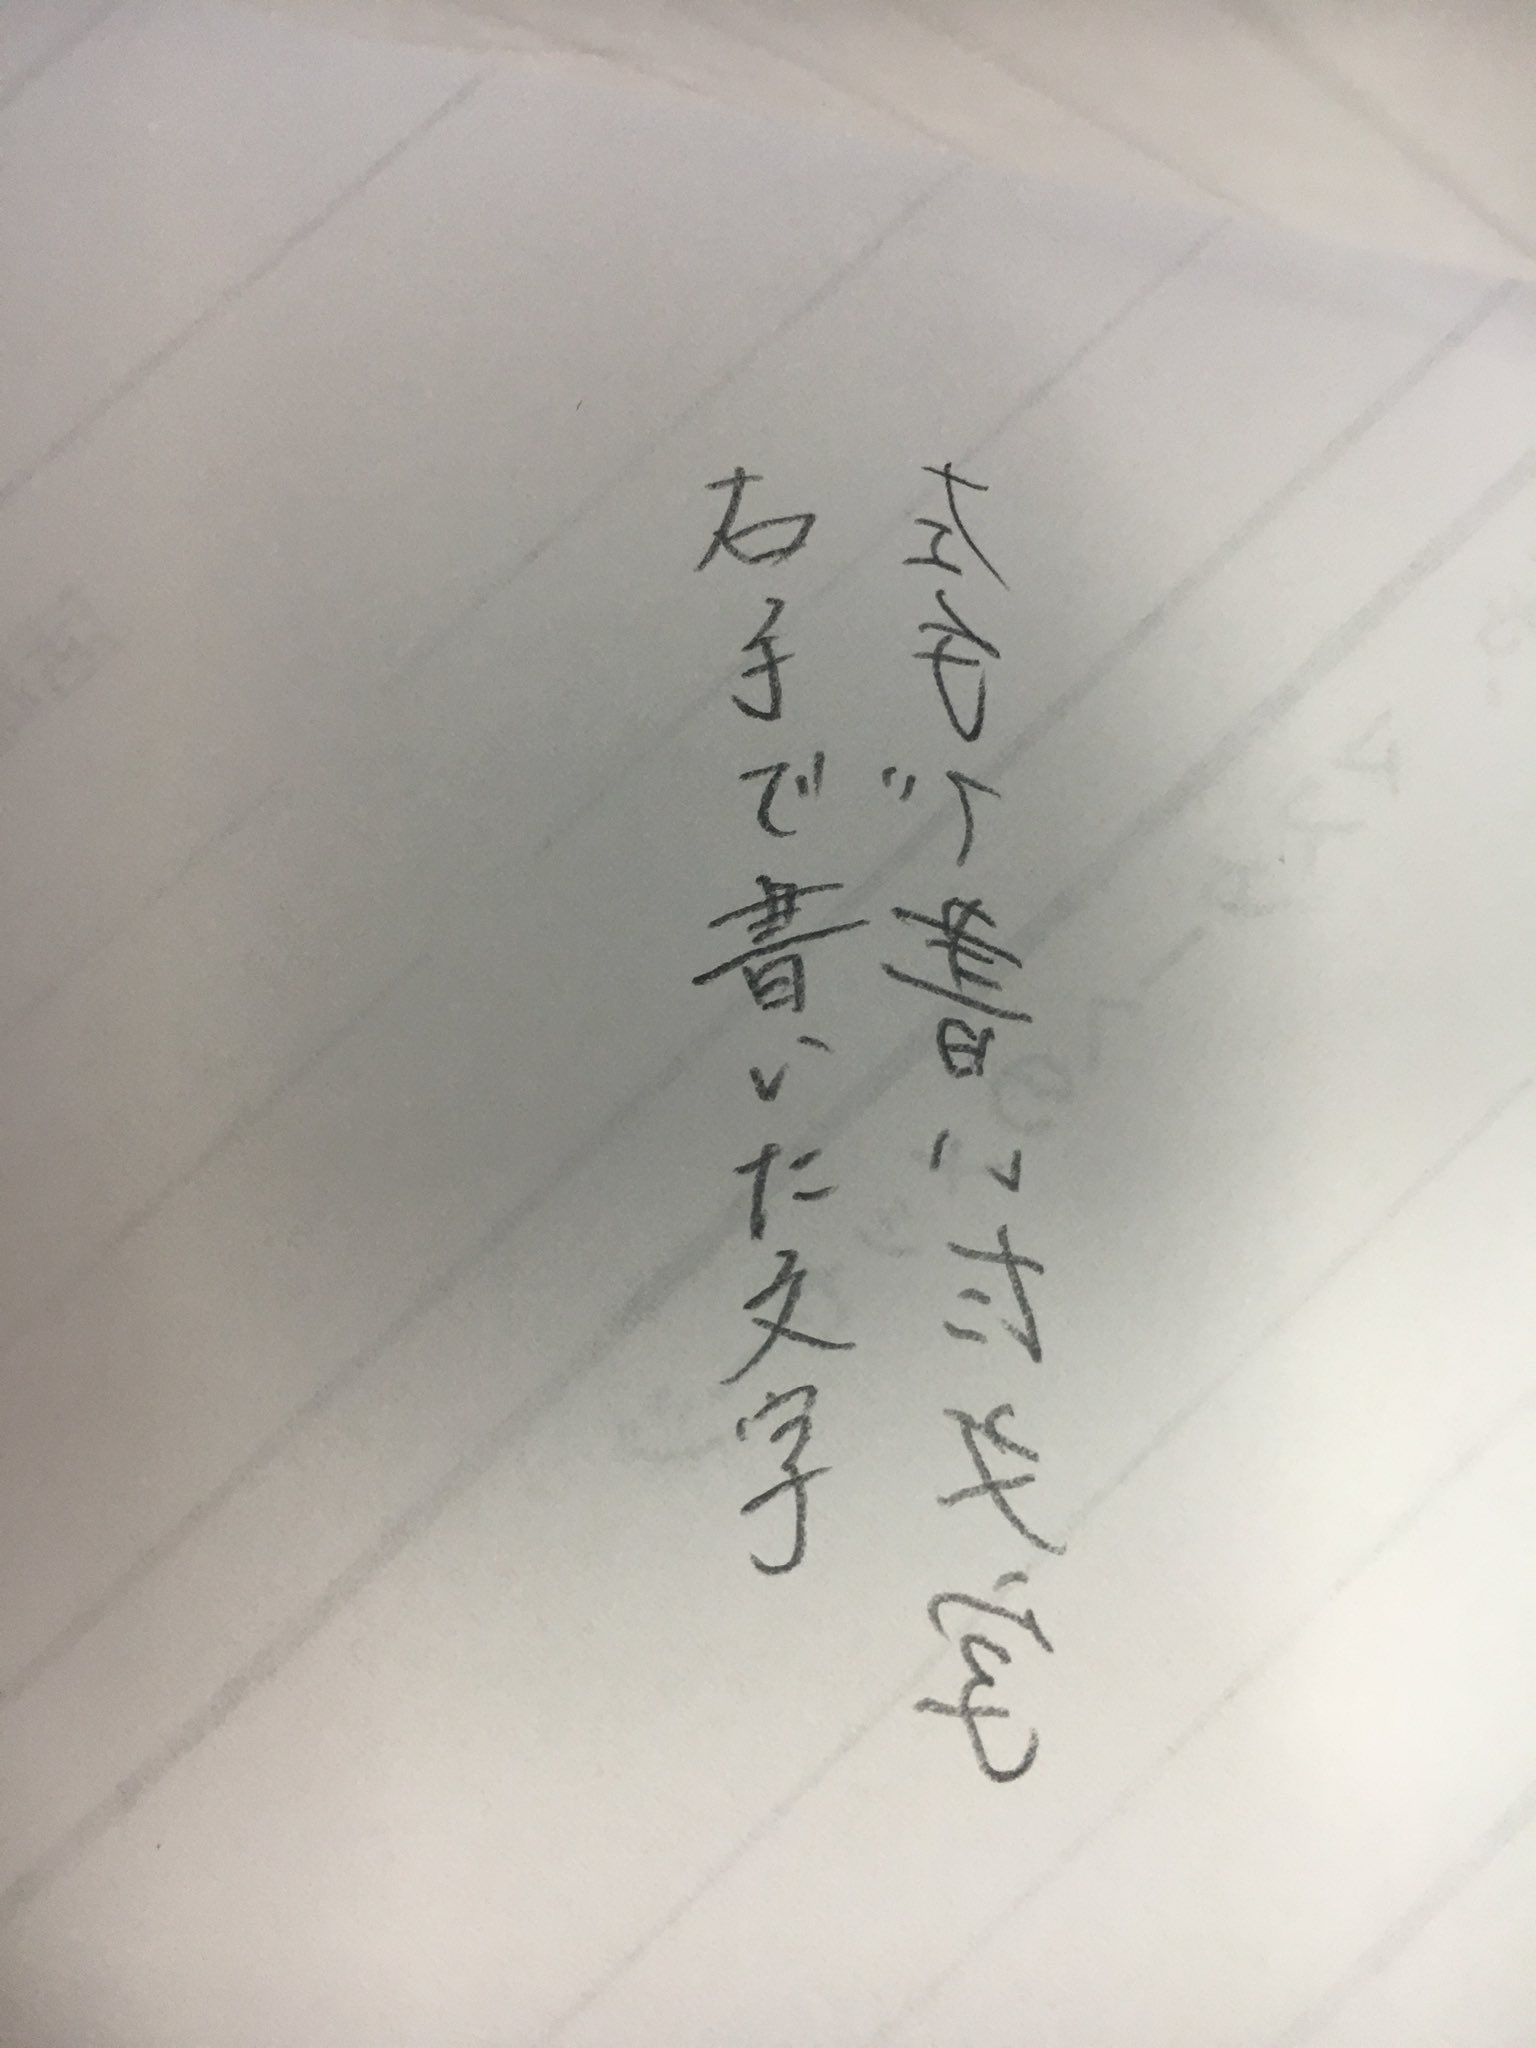 左手で書いた文字
右手で書いた文字